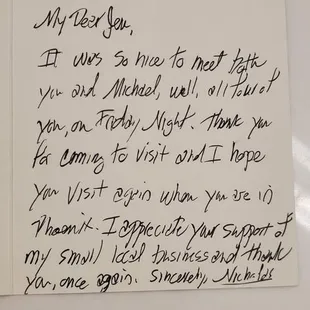 My Dear Jen,
It was so nice to meet both
you and Michael, well, all four of
you, on Friday Night. Thank you
for coming to visit and I hope
you visit again whom you are in
Phoenix. I appreciate your support of
my small local business and thank
you, once again. Sincerely, Nicholas